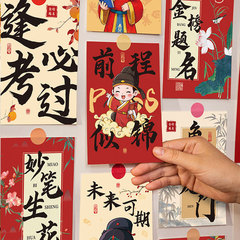 逢考
必过
前程
PASS
似锦
金榜
题名
妙笔
生花
MIAO
BI
SHENG
HUA
未来可期
门